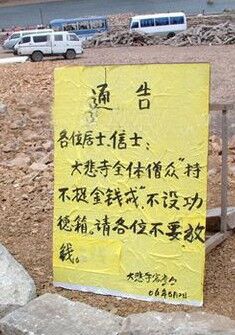 通告
各位居士、信士：
大悲寺全体僧众"持
不捉金钱戒"不设功
德箱，请各位不要放
钱。
大悲寺客堂